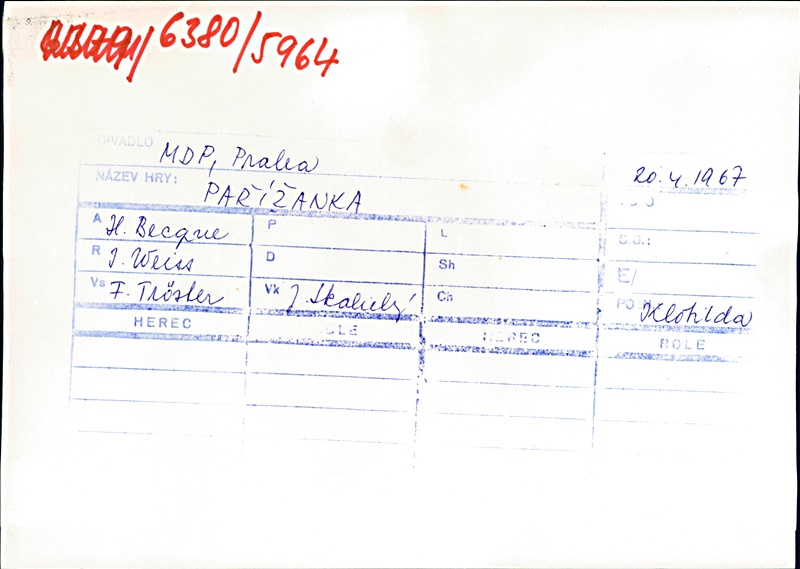 6380/5964
DIVADLO MDP, Praha 20.4.1967
NÁZEV HRY: PAŘÍŽANKA
A H. Becque P L S.O.:
R J. Weiss D Sh E/
Vs F. Tröster Vk J. Skalický Ch Klotilda
HEREC ROLE HEREC ROLE